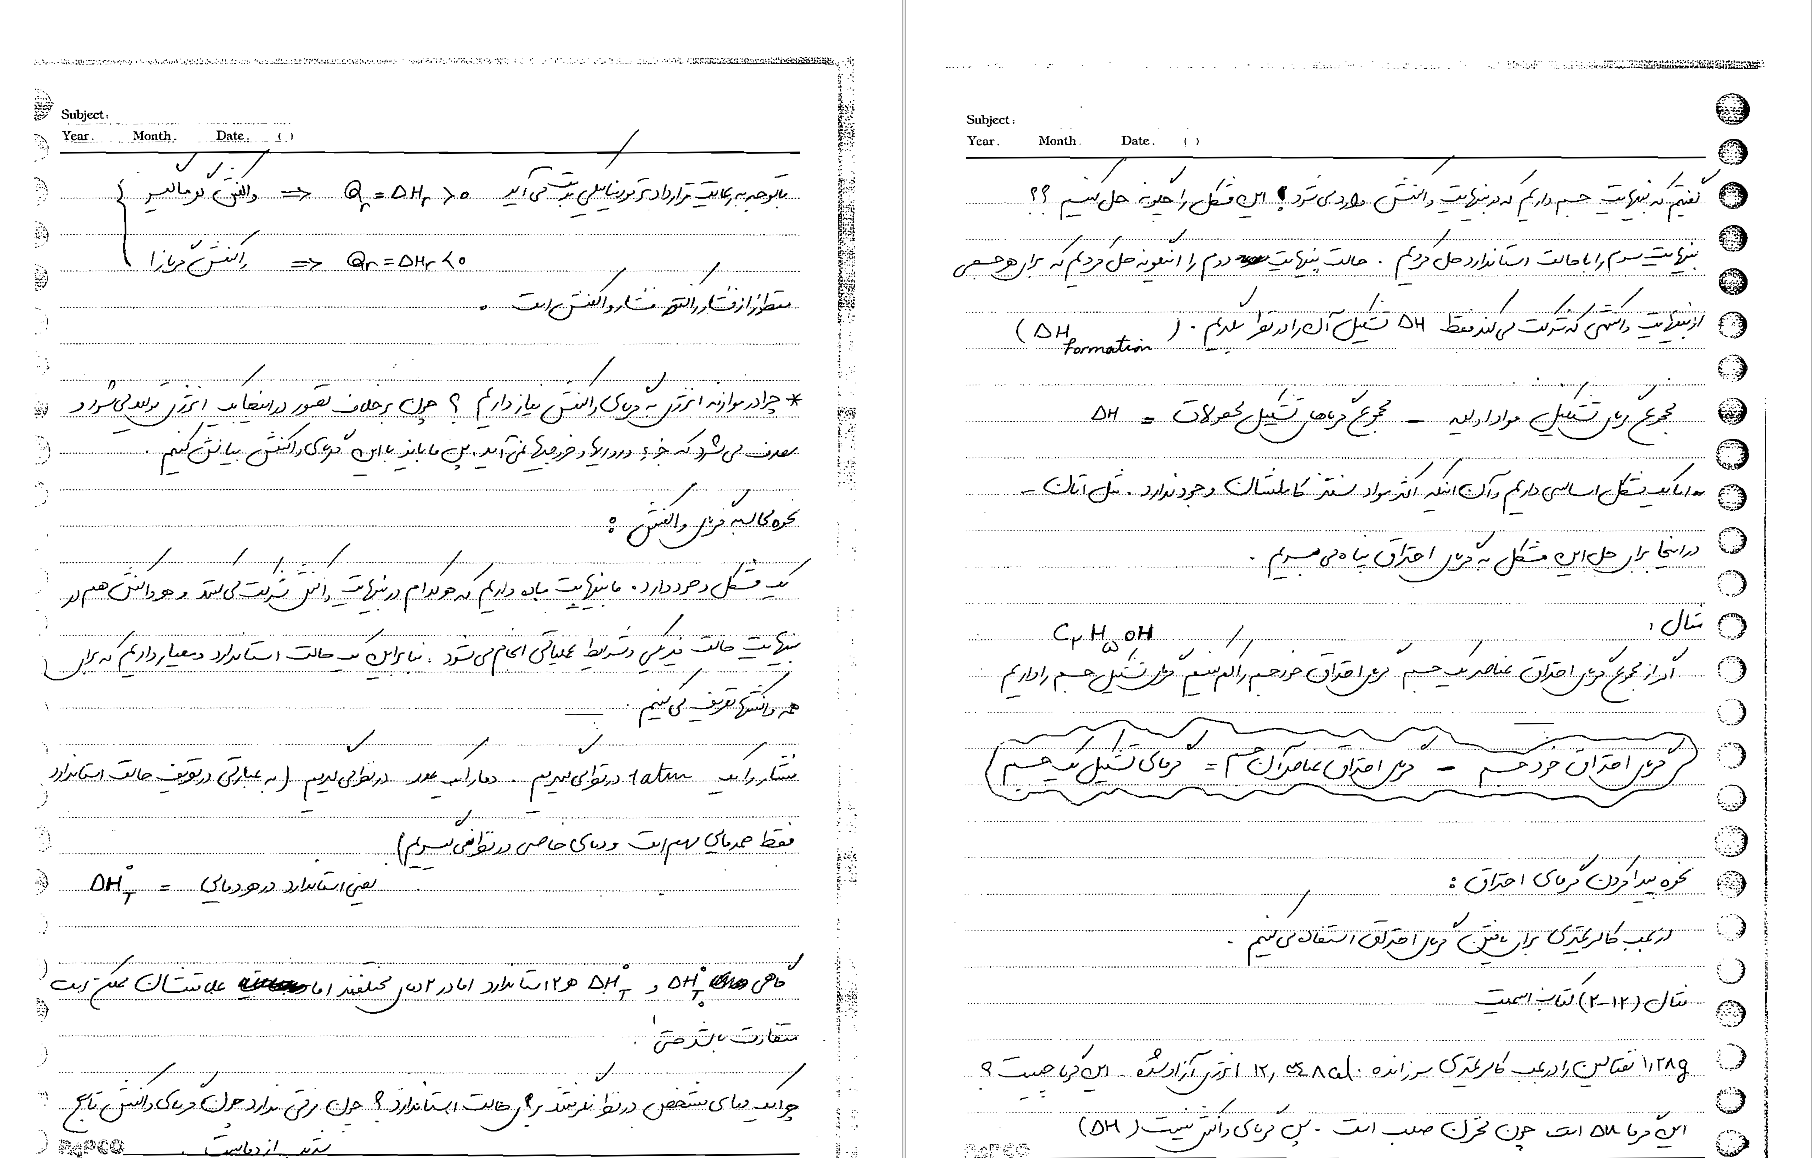 Subject:
Year. Month. Date. ( )
گفتیم که بینهایت جسم داریم که در بینهایت واکنش وارد می شود! این مشکل را چگونه حل کنیم ؟؟
بینهایت سوم را با حالت استاندارد حل کردیم . حالت بینهایت دوم را اینگونه حل کردیم که برای هر جسمی
از بینهایت واکنشی که شرکت می کند فقط ΔH تشکیل آن را در نظر بگیریم . ( ΔH formation )
مجموع گرمای تشکیل مواد اولیه − مجموع گرماهای تشکیل محصولات = ΔH
- اما یک مشکل اساسی داریم و آن اینکه اکثر مواد سنتز کاملشان وجود ندارد . مثل اتان -
در اینجا برای حل این مشکل به گرمای احتراق پناه می بریم .
مثال : C₂H₅OH
اگر از مجموع گرمای احتراق عناصر یک جسم گرمای احتراق خود جسم را کم کنیم گرمای تشکیل جسم را داریم
گرمای احتراق خود جسم − گرمای احتراق عناصر آن جسم = گرمای تشکیل یک جسم
نحوه پیدا کردن گرمای احتراق :
از بمب کالریمتری برای یافتن گرمای احتراق استفاده می کنیم .
مثال (۲-۱۲) کتاب اسمیت
۱٫۲۸g نفتالین را در بمب کالریمتری سوزانده انرژی آزاد شده . این گرما چیست ؟
این گرما ΔU است چون مخزن صلب است . پس گرمای واکنش نیست ( ΔH )
PAPCO
Subject:
Year. Month. Date. ( )
با توجه به رعایت قرارداد ترمودینامیکی بدست می آید Qᵣ = ΔHᵣ > ۰ ⇒ واکنش گرماگیر
Qᵣ = ΔHᵣ < ۰ ⇒ واکنش گرمازا
منظور از فشار واکنش فشار واکنش است .
* چرا در موازنه انرژی به گرمای واکنش نیاز داریم ؟ چون برخلاف تصور در اینجا یک انرژی تولید می شود و
مصرف می شود که جزء ورودیها و خروجیها نمی آید. پس ما باید با این گرمای واکنش بیانش کنیم .
نحوه محاسبه گرمای واکنش :
یک مشکل وجود دارد . ما بینهایت ماده داریم که هر کدام در بینهایت واکنش شرکت می کنند و هر واکنش هم در
بینهایت حالت فیزیکی و شرایط عملیاتی انجام می شود . بنابراین یک حالت استاندارد و معیار داریم که برای
همه واکنشها تعریف می کنیم .
فشار را یک 1 atm در نظر می گیریم . دما را یک عدد در نظر می گیریم ( به عبارتی در تعریف حالت استاندارد
فقط همدمایی مهم است و دمای خاصی در نظر نمی گیریم )
یعنی استاندارد در هر دمایی = ΔH°_T
گاهی ΔH°_T₀ و ΔH°_T هر ۲ استاندارد اما در ۲ دمای مختلفند اما علامتشان ممکن است
متفاوت باشد حتی .
چرا یک دمای مشخص در نظر نگرفتند برای حالت استاندارد ؟ چون فرقی ندارد چون گرمای واکنش تابع
شدید از دماست .
PAPCO